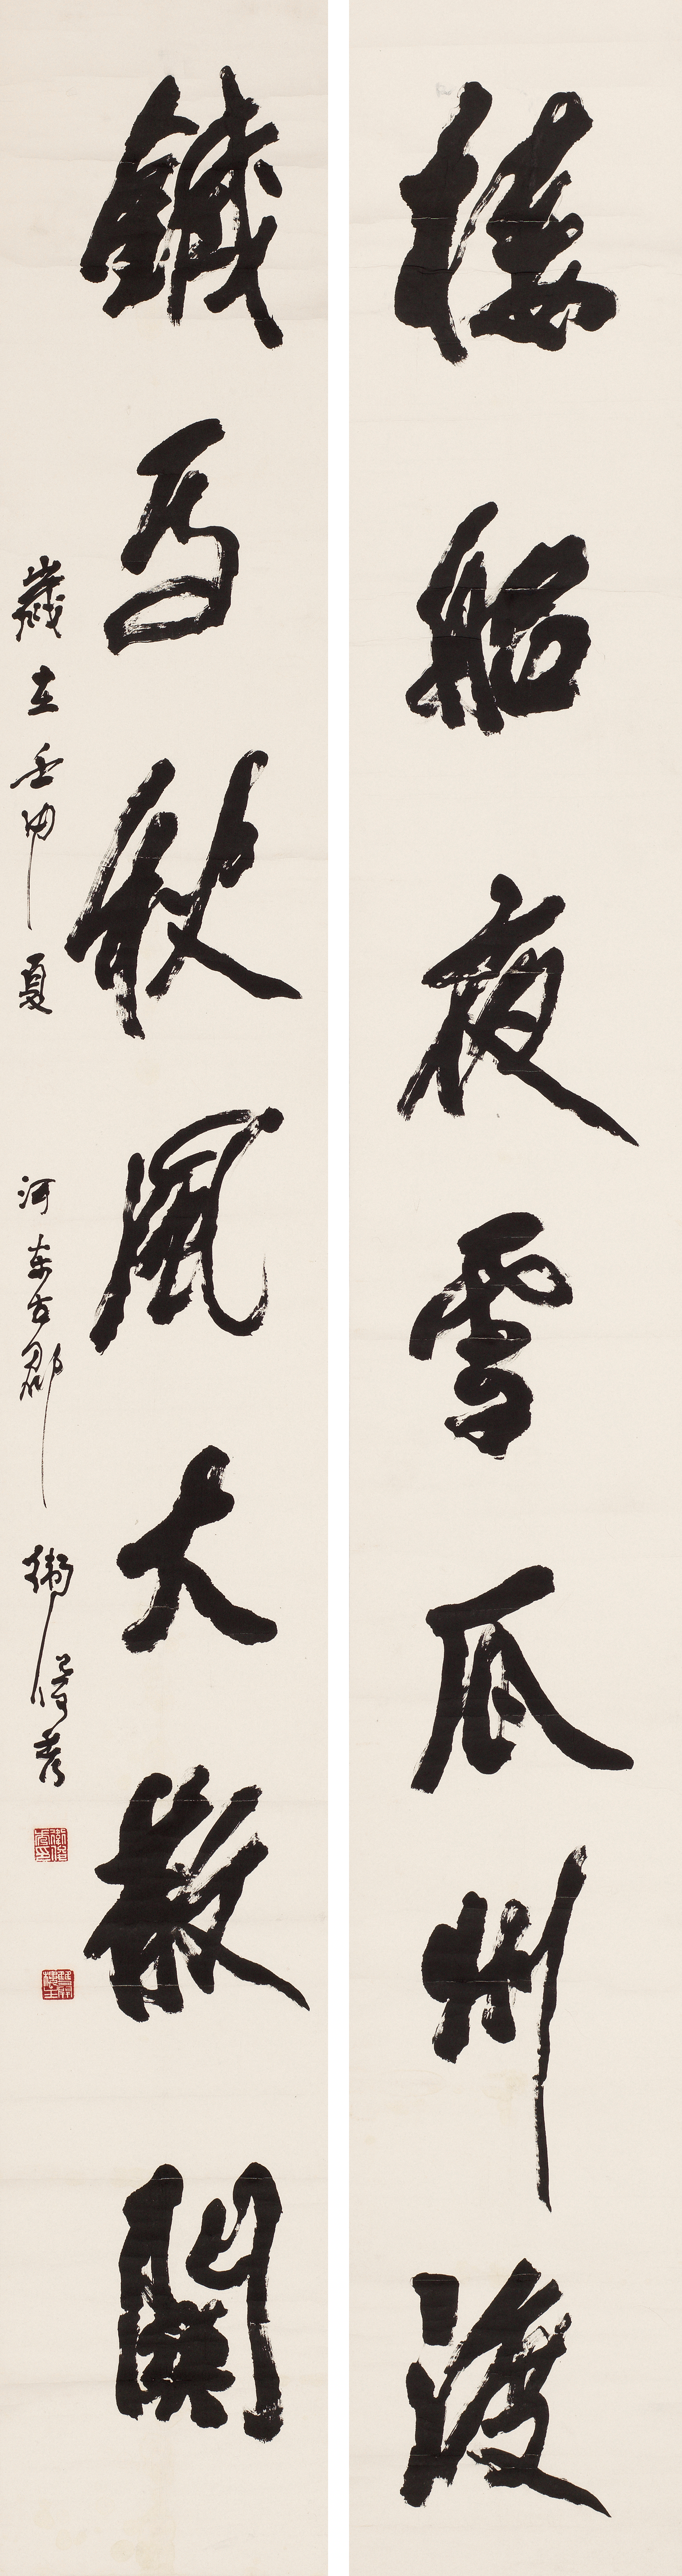 楼船夜雪瓜州渡
鐵馬秋風大散關
歲在壬申夏 河東古郡 衛俊秀